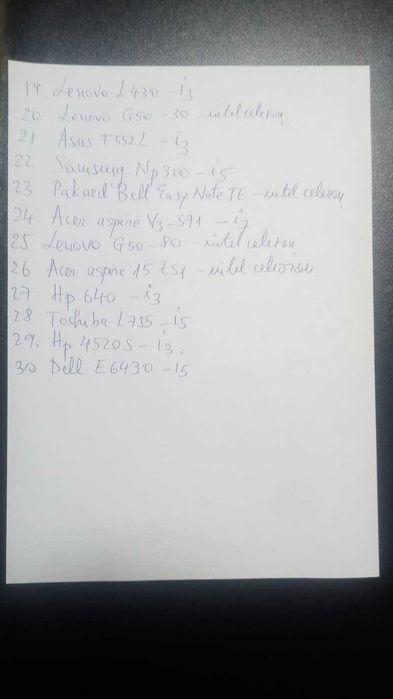 19 Lenovo L430 - i3
20 Lenovo G50-30 - intel celeron
21 Asus F552L - i3
22 Samsung Np300 - i5
23 Pakard Bell Easy Note TE - intel celeron
24 Acer aspire V3-571 - i3
25 Lenovo G50-80 - intel celeron
26 Acer aspire 15 ES1 - intel celeron
27 Hp 640 - i3
28 Toshiba L755 - i5
29. Hp 4520S - i3.
30 Dell E6430 - i5